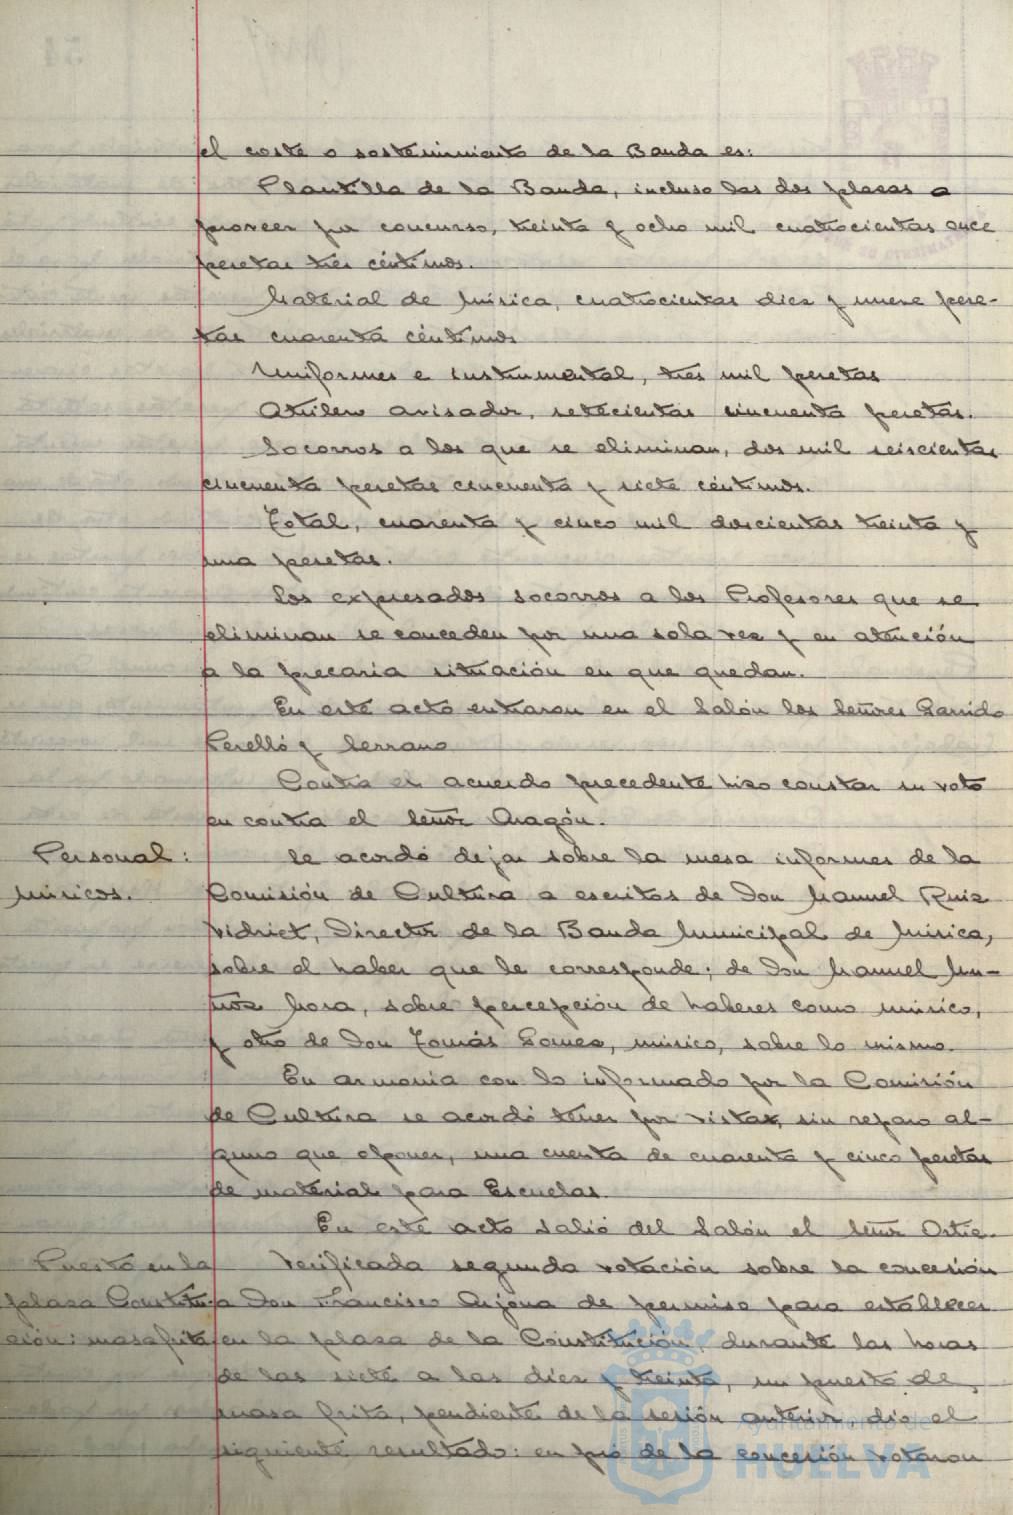 el coste o sostenimiento de la Banda es:
Plantilla de la Banda, incluso las dos plasas a
proveer por concurso, treinta y ocho mil cuatrocientas once
pesetas tres céntimos.
Material de Música, cuatrocientas diez y nueve pese-
tas cuarenta céntimos
Uniformes e instrumental, tres mil pesetas
Atrilero avisador, setecientas cincuenta pesetas.
Socorros a los que se eliminan, dos mil seiscientas
cincuenta pesetas cincuenta y siete céntimos.
Total, cuarenta y cinco mil doscientas treinta y
una pesetas.
Los expresados socorros a los Profesores que se
eliminan se conceden por una sola vez y en atención
a la precaria situación en que quedan.
En este acto entraron en el Salón los Señores Garrido
Perelló y Serrano
Contra el acuerdo precedente hizo constar su voto
en contra el Señor Aragón.
Personal:
Músicos.
Se acordó dejar sobre la mesa informes de la
Comisión de Cultura a escritos de Don Manuel Ruiz
Vidriet, Director de la Banda Municipal de Música,
sobre el haber que le corresponde; de Don Manuel Mu-
ñoz Mora, sobre percepción de haberes como músico,
y otro de Don Tomás Gomez, músico, sobre lo mismo.
En armonia con lo informado por la Comisión
de Cultura se acordó tener por vista, sin reparo al-
guno que oponer, una cuenta de cuarenta y cinco pesetas
de material para Escuelas.
En este acto salió del Salón el Señor Ortiz.
Puesto en la
plaza Constitu-
ción: masa frita
Verificada segunda votación sobre la concesión
a Don Francisco Arjona de permiso para establecer
en la plasa de la Constitución, durante las horas
de las siete a las diez y treinta, un puesto de
masa frita, pendiente de la sesión anterior dio el
siguiente resultado: en pró de la concesión votaron
Ayuntamiento de
HUELVA